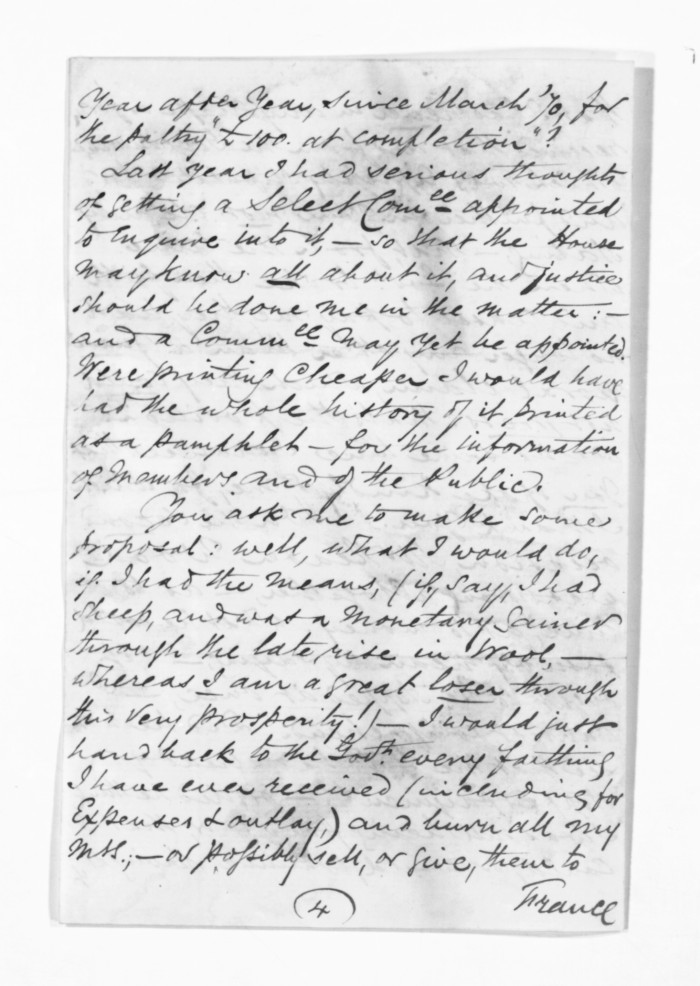 Year after Year, since March '70, for
the paltry "£100. at completion"?
Last year I had serious thoughts
of getting a Select Comee appointed
to Enquire into it, — so that the House
may know all about it, and justice
should be done me in the matter: —
and a Commee may yet be appointed.
Were printing Cheaper I would have
had the whole history of it printed
as a pamphlet — for the information
of Members and of the Public.
You ask me to make some
proposal: well, what I would do,
if I had the means, (if, say, I had
Sheep, and was a monetary Gainer
through the late rise in Wool, —
whereas I am a great loser through
this very prosperity!) — I would just
hand back to the Govt. every farthing
I have ever received (including for
Expenses & outlay,) and burn all my
MSS.; — or possibly sell, or give, them to
France
4